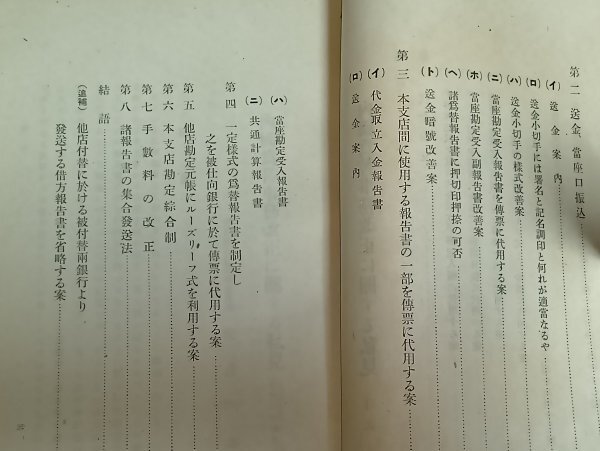 第二 送金、當座口振込
(イ) 送金案内
(ロ) 送金小切手には署名と記名調印と何れが適當なるや
(ハ) 送金小切手の樣式改善案
(ニ) 當座勘定受入報告書を傳票に代用する案
(ホ) 當座勘定受入副報告書改善案
(ヘ) 諸爲替報告書に押切印押捺の可否
(ト) 送金暗號改善案
第三 本支店間に使用する報告書の一部を傳票に代用する案
(イ) 代金取立入金報告書
(ロ) 送金案内
(ハ) 當座勘定受入報告書
(ニ) 共通計算報告書
第四 一定樣式の爲替報告書を制定し
之を被仕向銀行に於て傳票に代用する案
第五 他店勘定元帳にルーズリーフ式を利用する案
第六 本支店勘定綜合制
第七 手數料の改正
第八 諸報告書の集合發送法
結語
(追補) 他店付替に於ける被付替兩銀行より
發送する借方報告書を省略する案